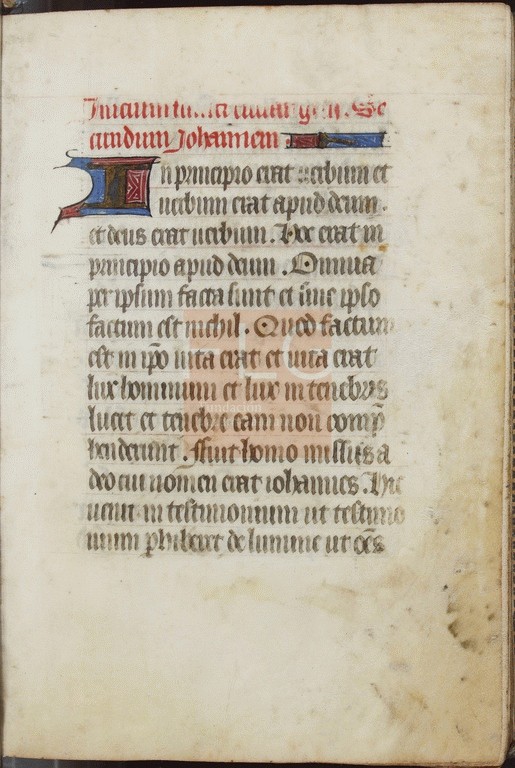 Inicium sancti euangelii. Se
cundum Johannem
In principio erat uerbum et
uerbum erat apud deum.
et deus erat uerbum. Hoc erat in
principio apud deum. Omnia
per ipsum facta sunt et sine ipso
factum est nichil. Quod factum
est in ip̄o uita erat et uita erat
lux hominum et lux in tenebris
lucet et tenebre eam non comp̄
henderunt. ffuit homo missus a
deo cui nomen erat iohannes. Hic
uenit in testimonium ut testimo
nium phiberet de lumine ut om̄s
fundación